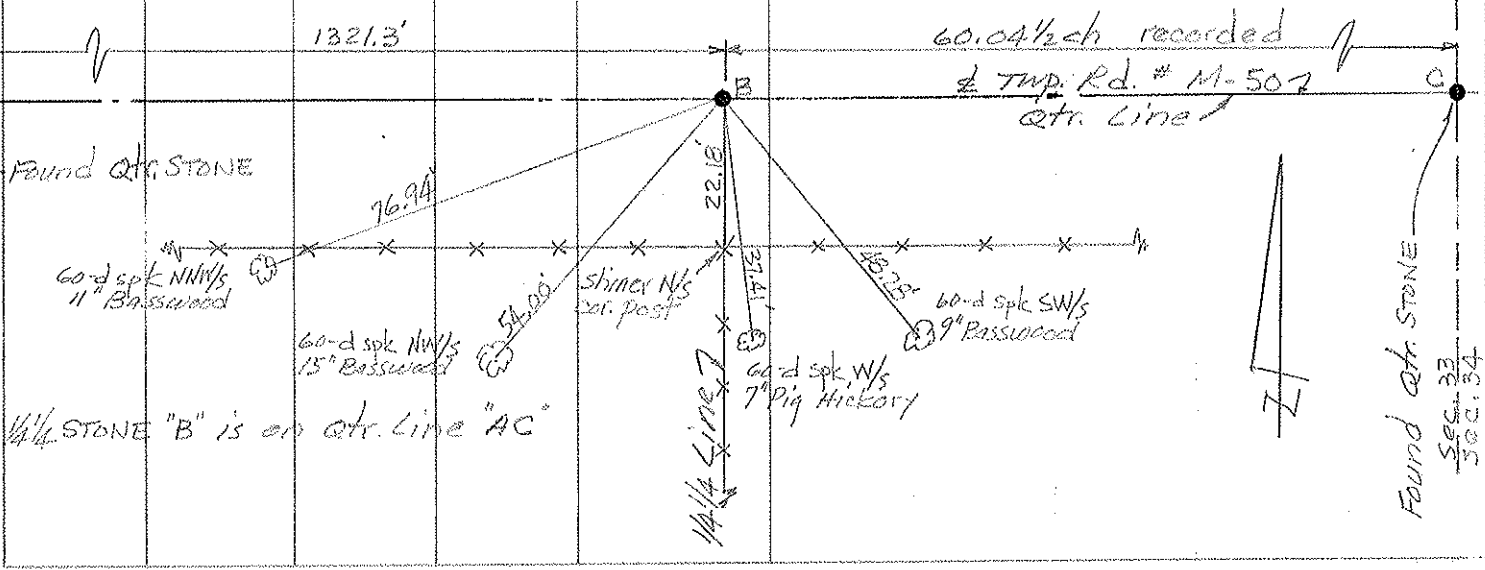 1321.3'
60.04½ ch recorded
℄ Twp. Rd. # M-50
Qtr. Line
B
C
Found Qtr. STONE
76.94'
22.18'
60-d spk NNW/s
11" Basswood
54.00'
Shiner N/s
cor. post
37.41'
48.28'
60-d spk SW/s
9" Basswood
60-d spk NW/s
15" Basswood
60-d spk W/s
7" Pig Hickory
¼¼ STONE "B" is on Qtr. Line "AC"
¼¼ Line
Found Qtr. STONE
Sec. 33
Sec. 34